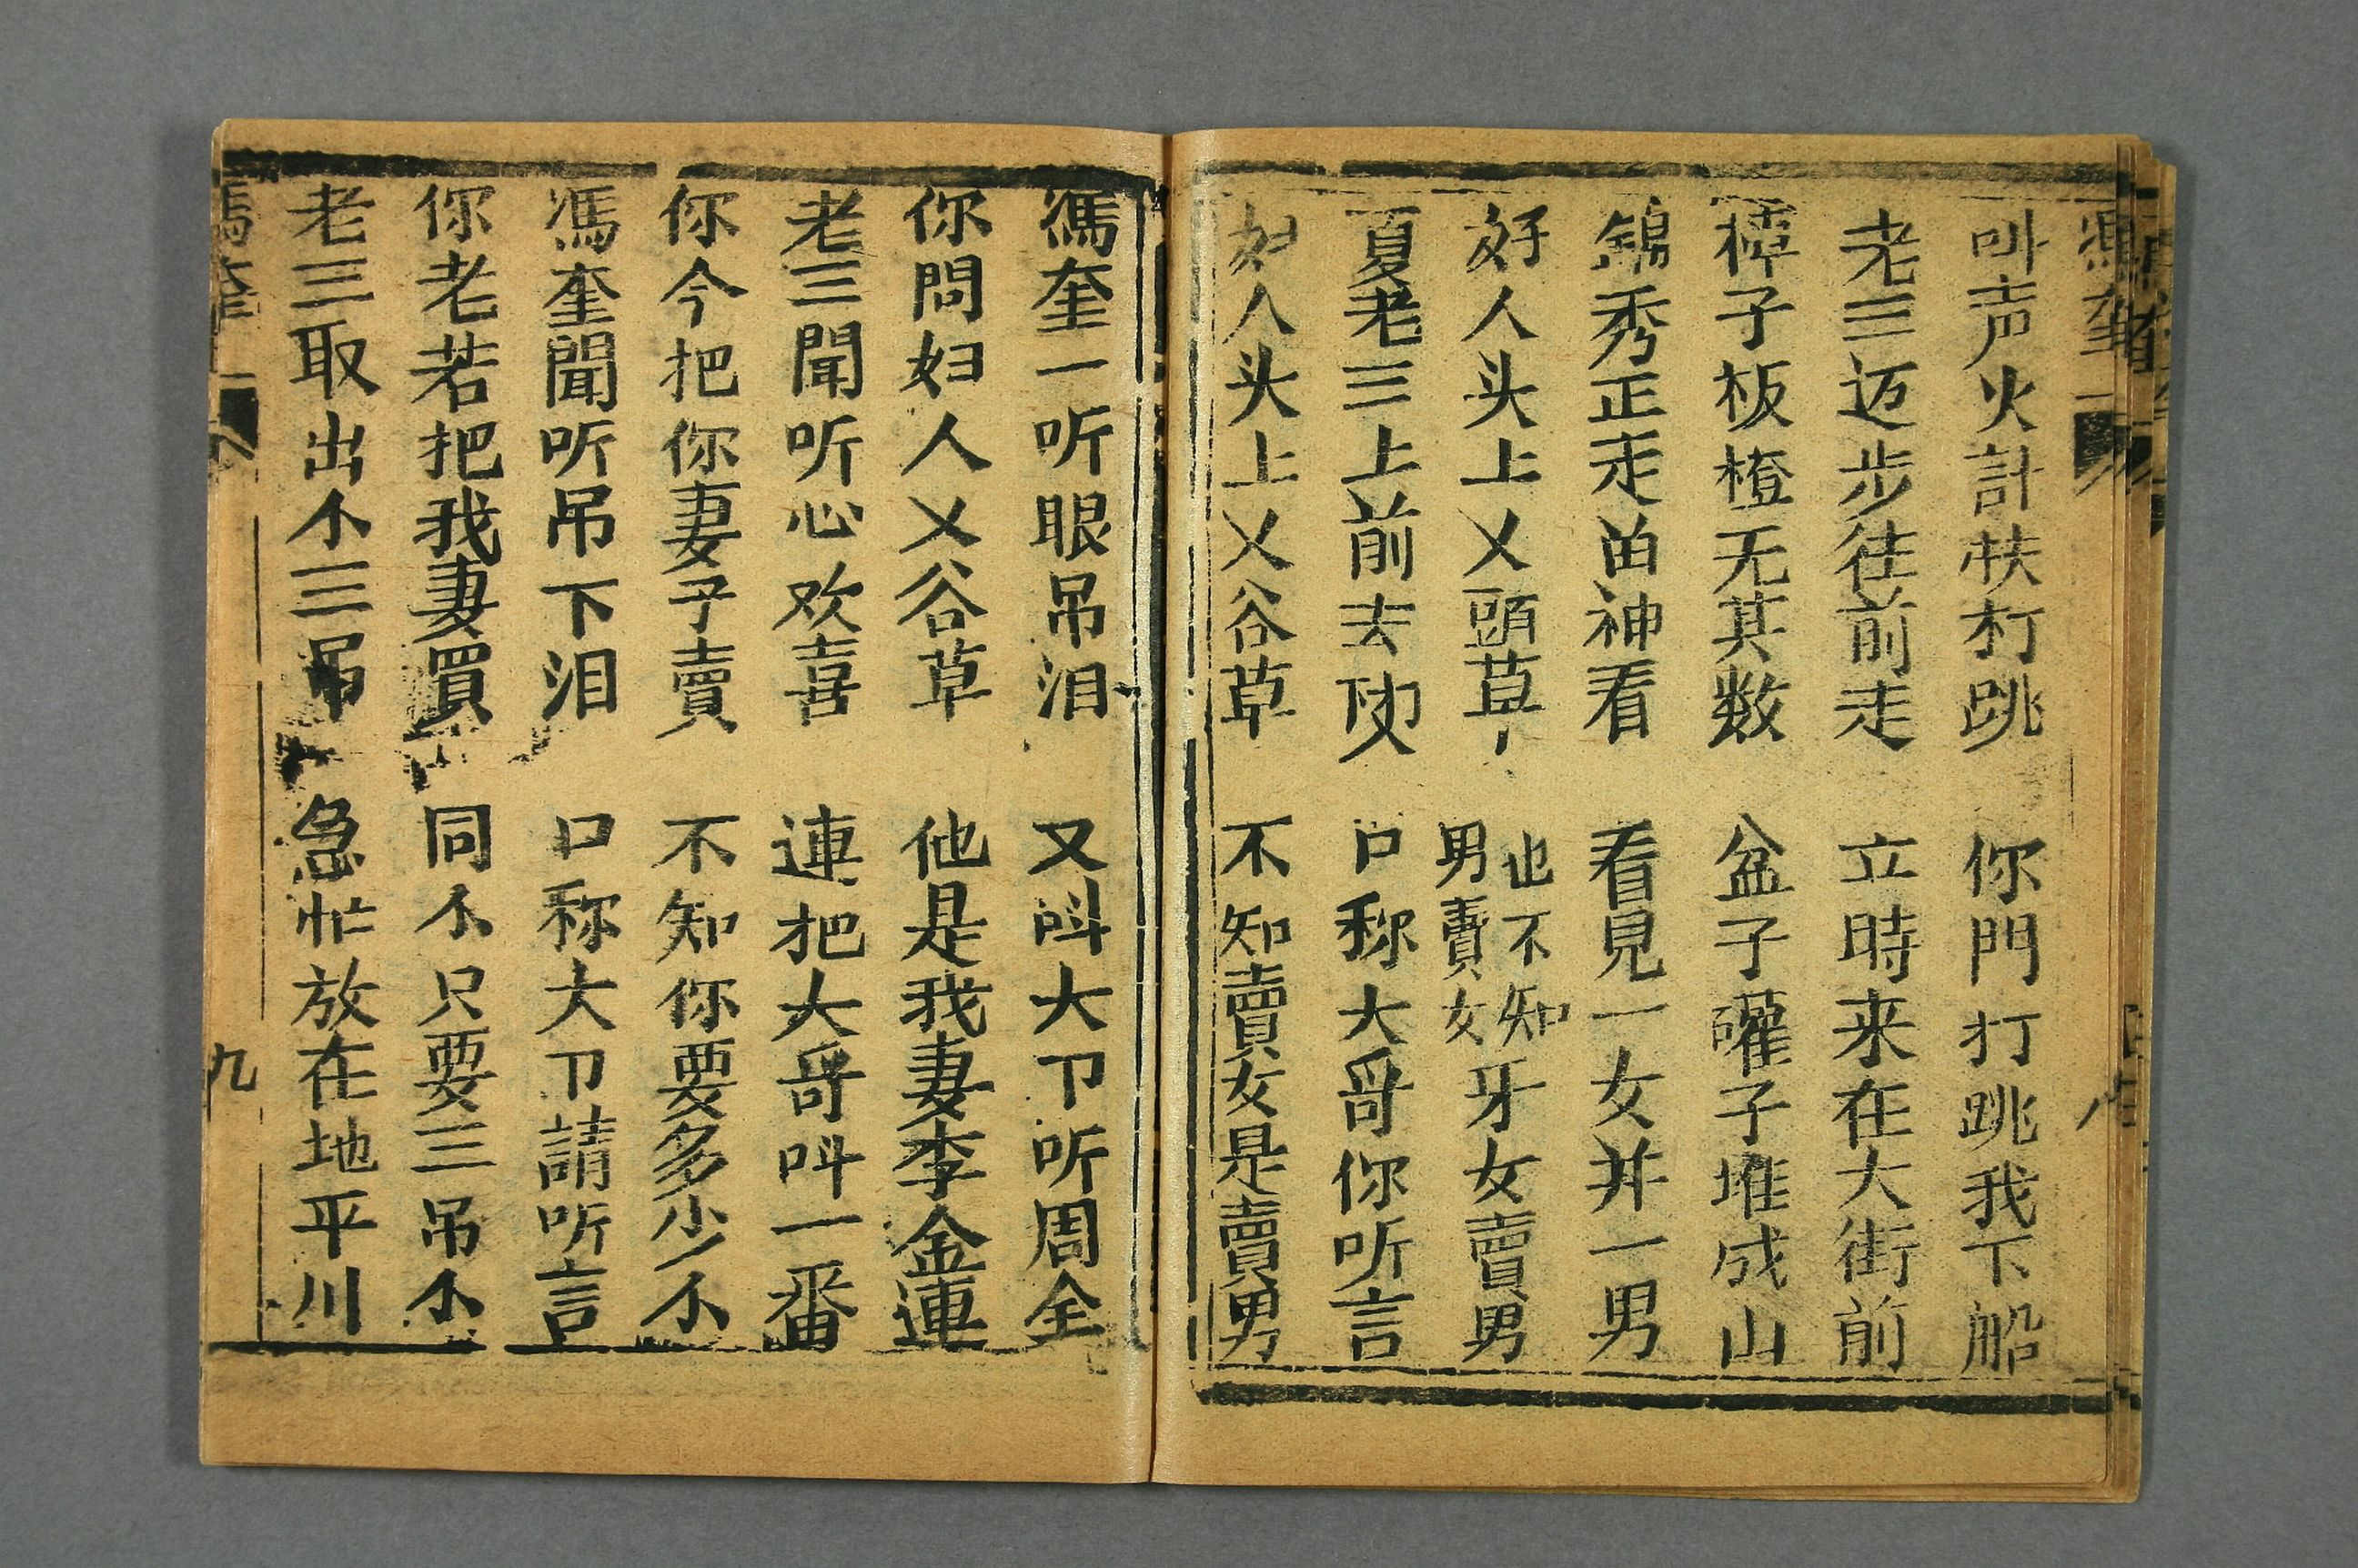 馮奎
叫声火計扶打跳　你門打跳我下船
老三迈步往前走　立時来在大街前
樟子板橙无其数　盆子礶子堆成山
錦秀正走苗神看　看見一女并一男
好人头上乂頭草　也不知男賣女牙女賣男
夏老三上前去　口称大哥你听言
妇人头上乂谷草　不知賣女是賣男
馮奎一听眼吊泪　又叫大卩听周全
你問妇人乂谷草　他是我妻李金連
老三聞听心欢喜　連把大哥叫一番
你今把你妻子賣　不知你要多少个
馮奎聞听吊下泪　口称大卩請听言
你老若把我妻買　同个只要三吊个
老三取出个三吊　急忙放在地平川
馮奎　九